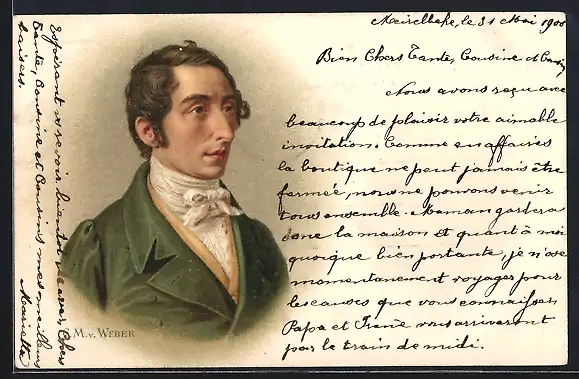 Meirelbeke, le 31 Mai 1900
Bien Chers Tante, Cousine et Cousin
Nous avons reçu avec
beaucoup de plaisir votre aimable
invitation. Comme en affaires
la boutique ne peut jamais être
fermée, nous ne pouvons venir
tous ensemble. Maman gardera
donc la maison et quant à moi
quoique bien portante, je n'ose
momentanement voyager pour
les causes que vous connaissez
Papa et Irène vous arriveront
par le train de midi.
Espérant vous revoir bientôt, recevez, Chers
Tante, Cousine et Cousins mes meilleurs
baisers.
Mariette
M. v. WEBER